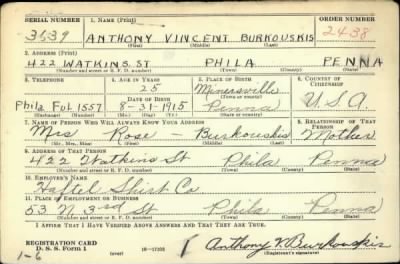 SERIAL NUMBER 1. NAME (Print) ORDER NUMBER
3539 ANTHONY VINCENT BURKOUSKIS 2438
(First) (Middle) (Last)
2. ADDRESS (Print)
422 WATKINS. ST PHILA PENNA
(Number and street or R. F. D. number) (Town) (County) (State)
3. TELEPHONE 4. AGE IN YEARS 5. PLACE OF BIRTH 6. COUNTRY OF CITIZENSHIP
25 Minersville
DATE OF BIRTH (Town or county)
Phila Ful. 1557 8-31-1915 Penna U.S.A.
(Exchange) (Number) (Mo.) (Day) (Yr.) (State or country)
7. NAME OF PERSON WHO WILL ALWAYS KNOW YOUR ADDRESS 8. RELATIONSHIP OF THAT PERSON
Mrs Rose - Burkouskis Mother
(Mr., Mrs., Miss) (First) (Middle) (Last)
9. ADDRESS OF THAT PERSON
422 Watkins St Phila Penna
(Number and street or R. F. D. number) (Town) (County) (State)
10. EMPLOYER'S NAME
Haftel Shirt Co
11. PLACE OF EMPLOYMENT OR BUSINESS
53 N 3rd St Phila Penna
(Number and street or R. F. D. number) (Town) (County) (State)
I AFFIRM THAT I HAVE VERIFIED ABOVE ANSWERS AND THAT THEY ARE TRUE.
REGISTRATION CARD
D. S. S. Form 1 (over) 16-17105 Anthony V. Burkouskis
1-6 (Registrant's signature)